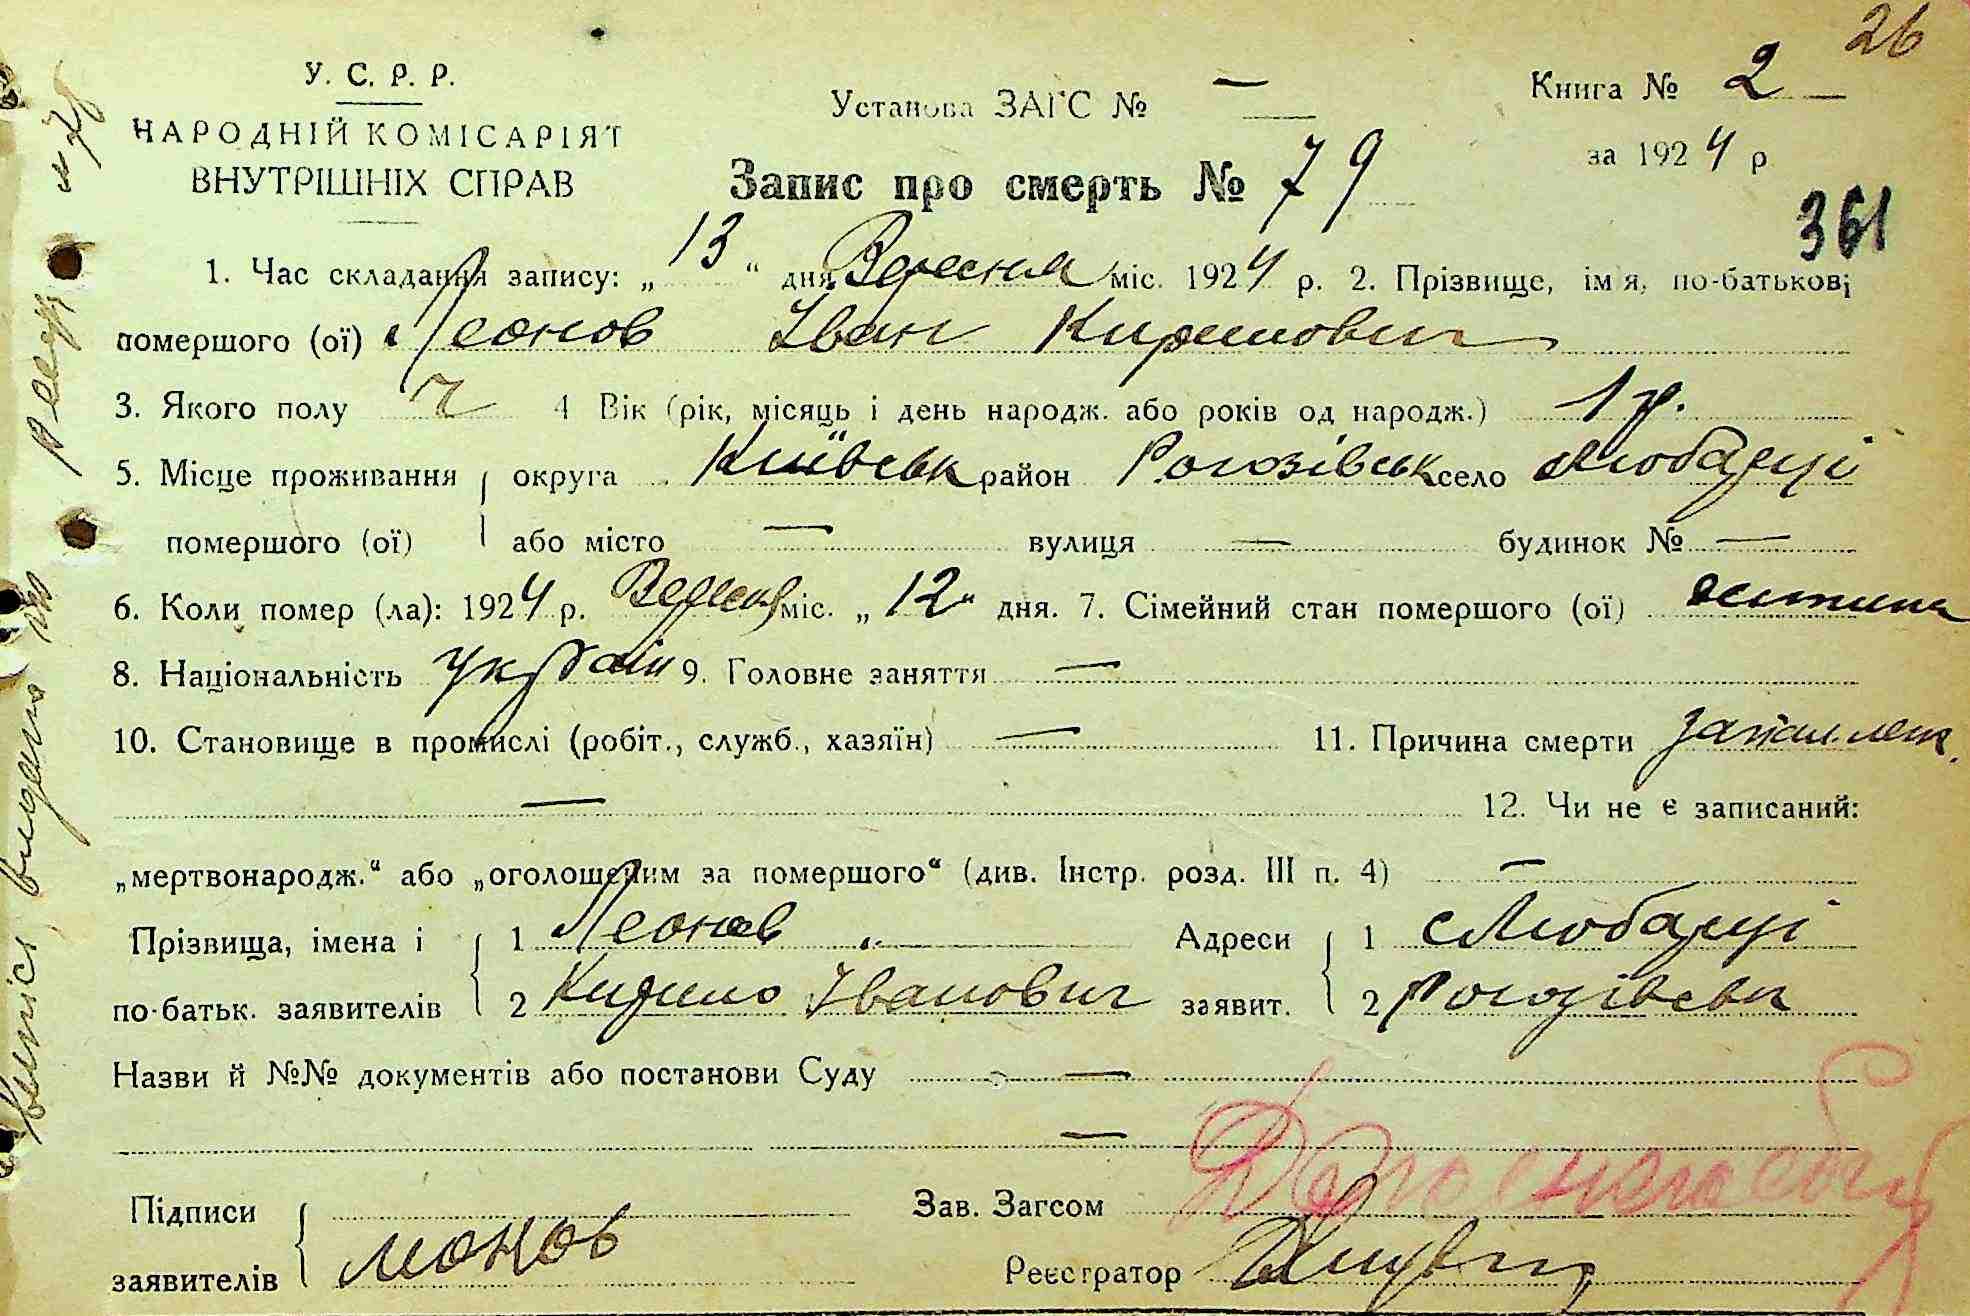 26
У. С. Р. Р.
НАРОДНІЙ КОМІСАРІЯТ
ВНУТРІШНІХ СПРАВ
Установа ЗАГС № —
Книга № 2
за 1924 р
Запис про смерть № 79
361
1. Час складання запису: „13“ дня Вересня міс. 1924 р. 2. Прізвище, ім'я, по-батькові
помершого (ої) Леонов Іван Кирилович
3. Якого полу ч 4 Вік (рік, місяць і день народж. або років од народж.) 1 р.
5. Місце проживання округа Київськ район Рогозівськ село Любарці
помершого (ої) або місто — вулиця — будинок № —
6. Коли помер (ла): 1924 р. Вересня міс. „12“ дня. 7. Сімейний стан помершого (ої) дитина
8. Національність україн 9. Головне заняття —
10. Становище в промислі (робіт., служб., хазяїн) — 11. Причина смерти запал. леген.
— 12. Чи не є записаний:
„мертвонародж.“ або „оголошеним за помершого“ (див. Інстр. розд. III п. 4) —
Прізвища, імена і 1 Леонов Адреси 1 с Любарці
по-батьк. заявителів 2 Кирило Іванович заявит. 2 Рогозівськ
Назви й №№ документів або постанови Суду —
—
Підписи Зав. Загсом
заявителів Леонов Реєстратор